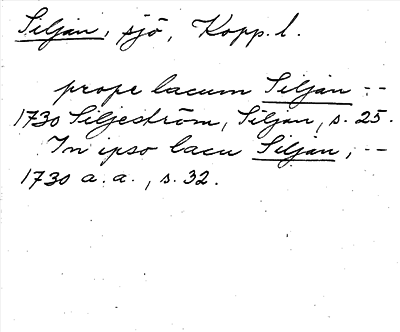 Siljan, sjö, Kopp. l.
prope lacum Siljan --
1730 Siljeström, Siljan, s. 25.
In ipso lacu Siljan, --
1730 a. a., s. 32.